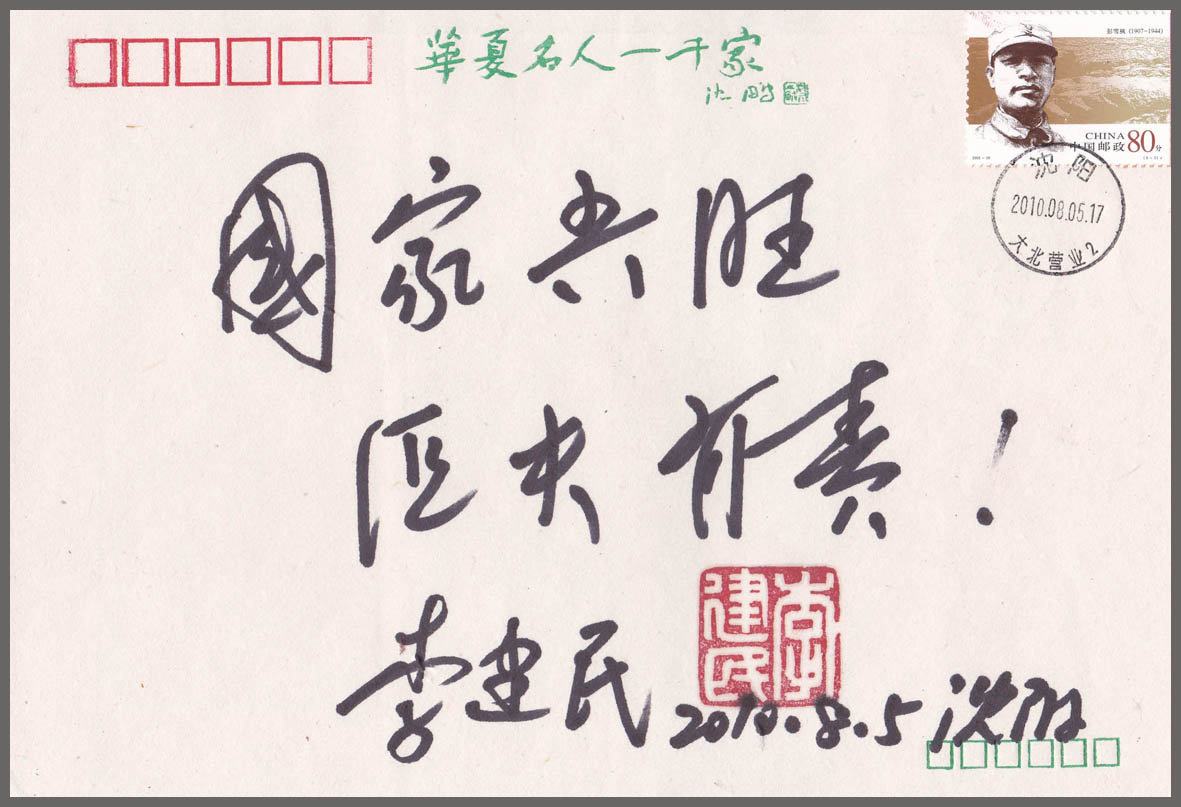 華夏名人一千家
沈鹏
彭雪枫 (1907-1944)
CHINA
中国邮政 80分
沈阳
2010.08.05.17
大北营业2
國家兴旺
匹夫有责！
李建民
李建民 2010.8.5 沈阳